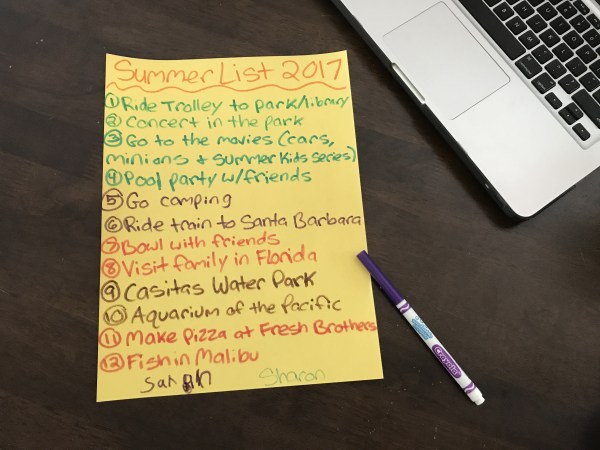 Summer List 2017
① Ride Trolley to park/library
② Concert in the park
③ Go to the movies (cars,
minions + summer kids series)
④ Pool party w/friends
⑤ Go camping
⑥ Ride train to Santa Barbara
⑦ Bowl with friends
⑧ Visit family in Florida
⑨ Casitas Water Park
⑩ Aquarium of the Pacific
⑪ Make Pizza at Fresh Brothers
⑫ Fish in Malibu
Sharon
Crayola